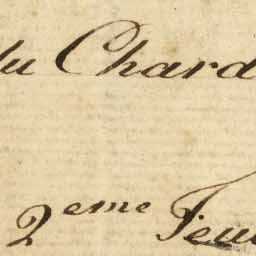 du Chard
2eme Feui